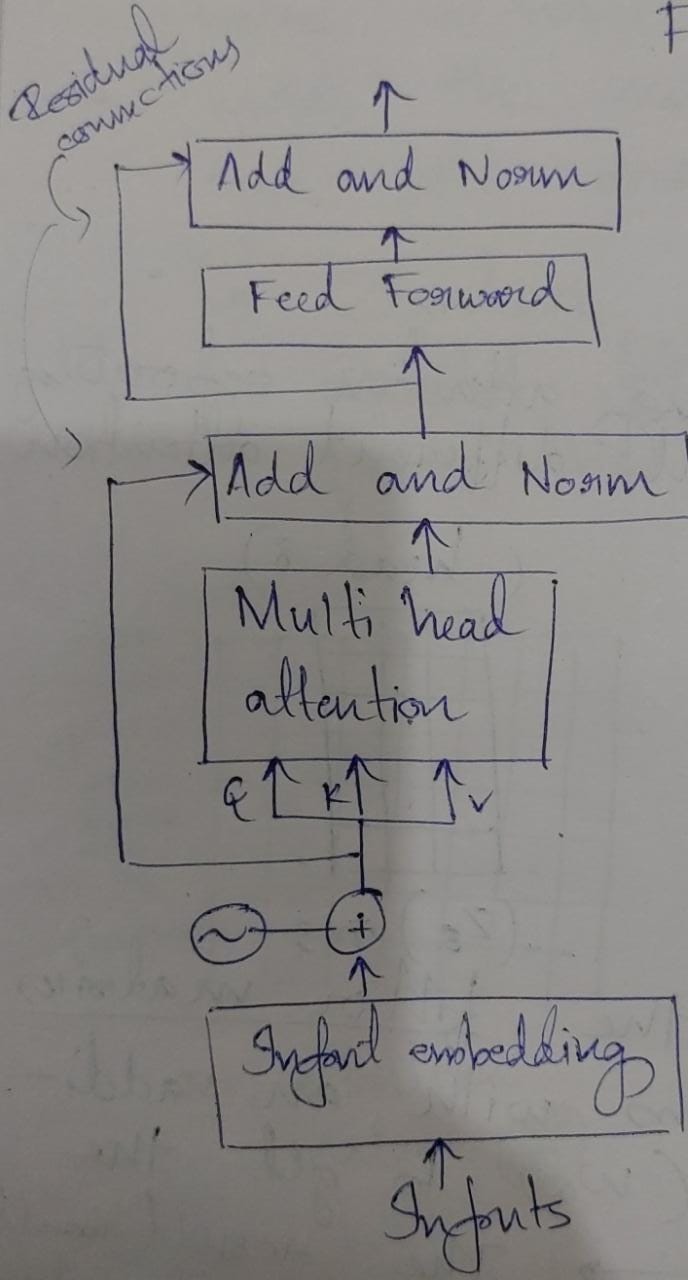 Residual
connections
Add and Norm
Feed Forward
Add and Norm
Multi head
attention
Q K V
+
Input embedding
Inputs